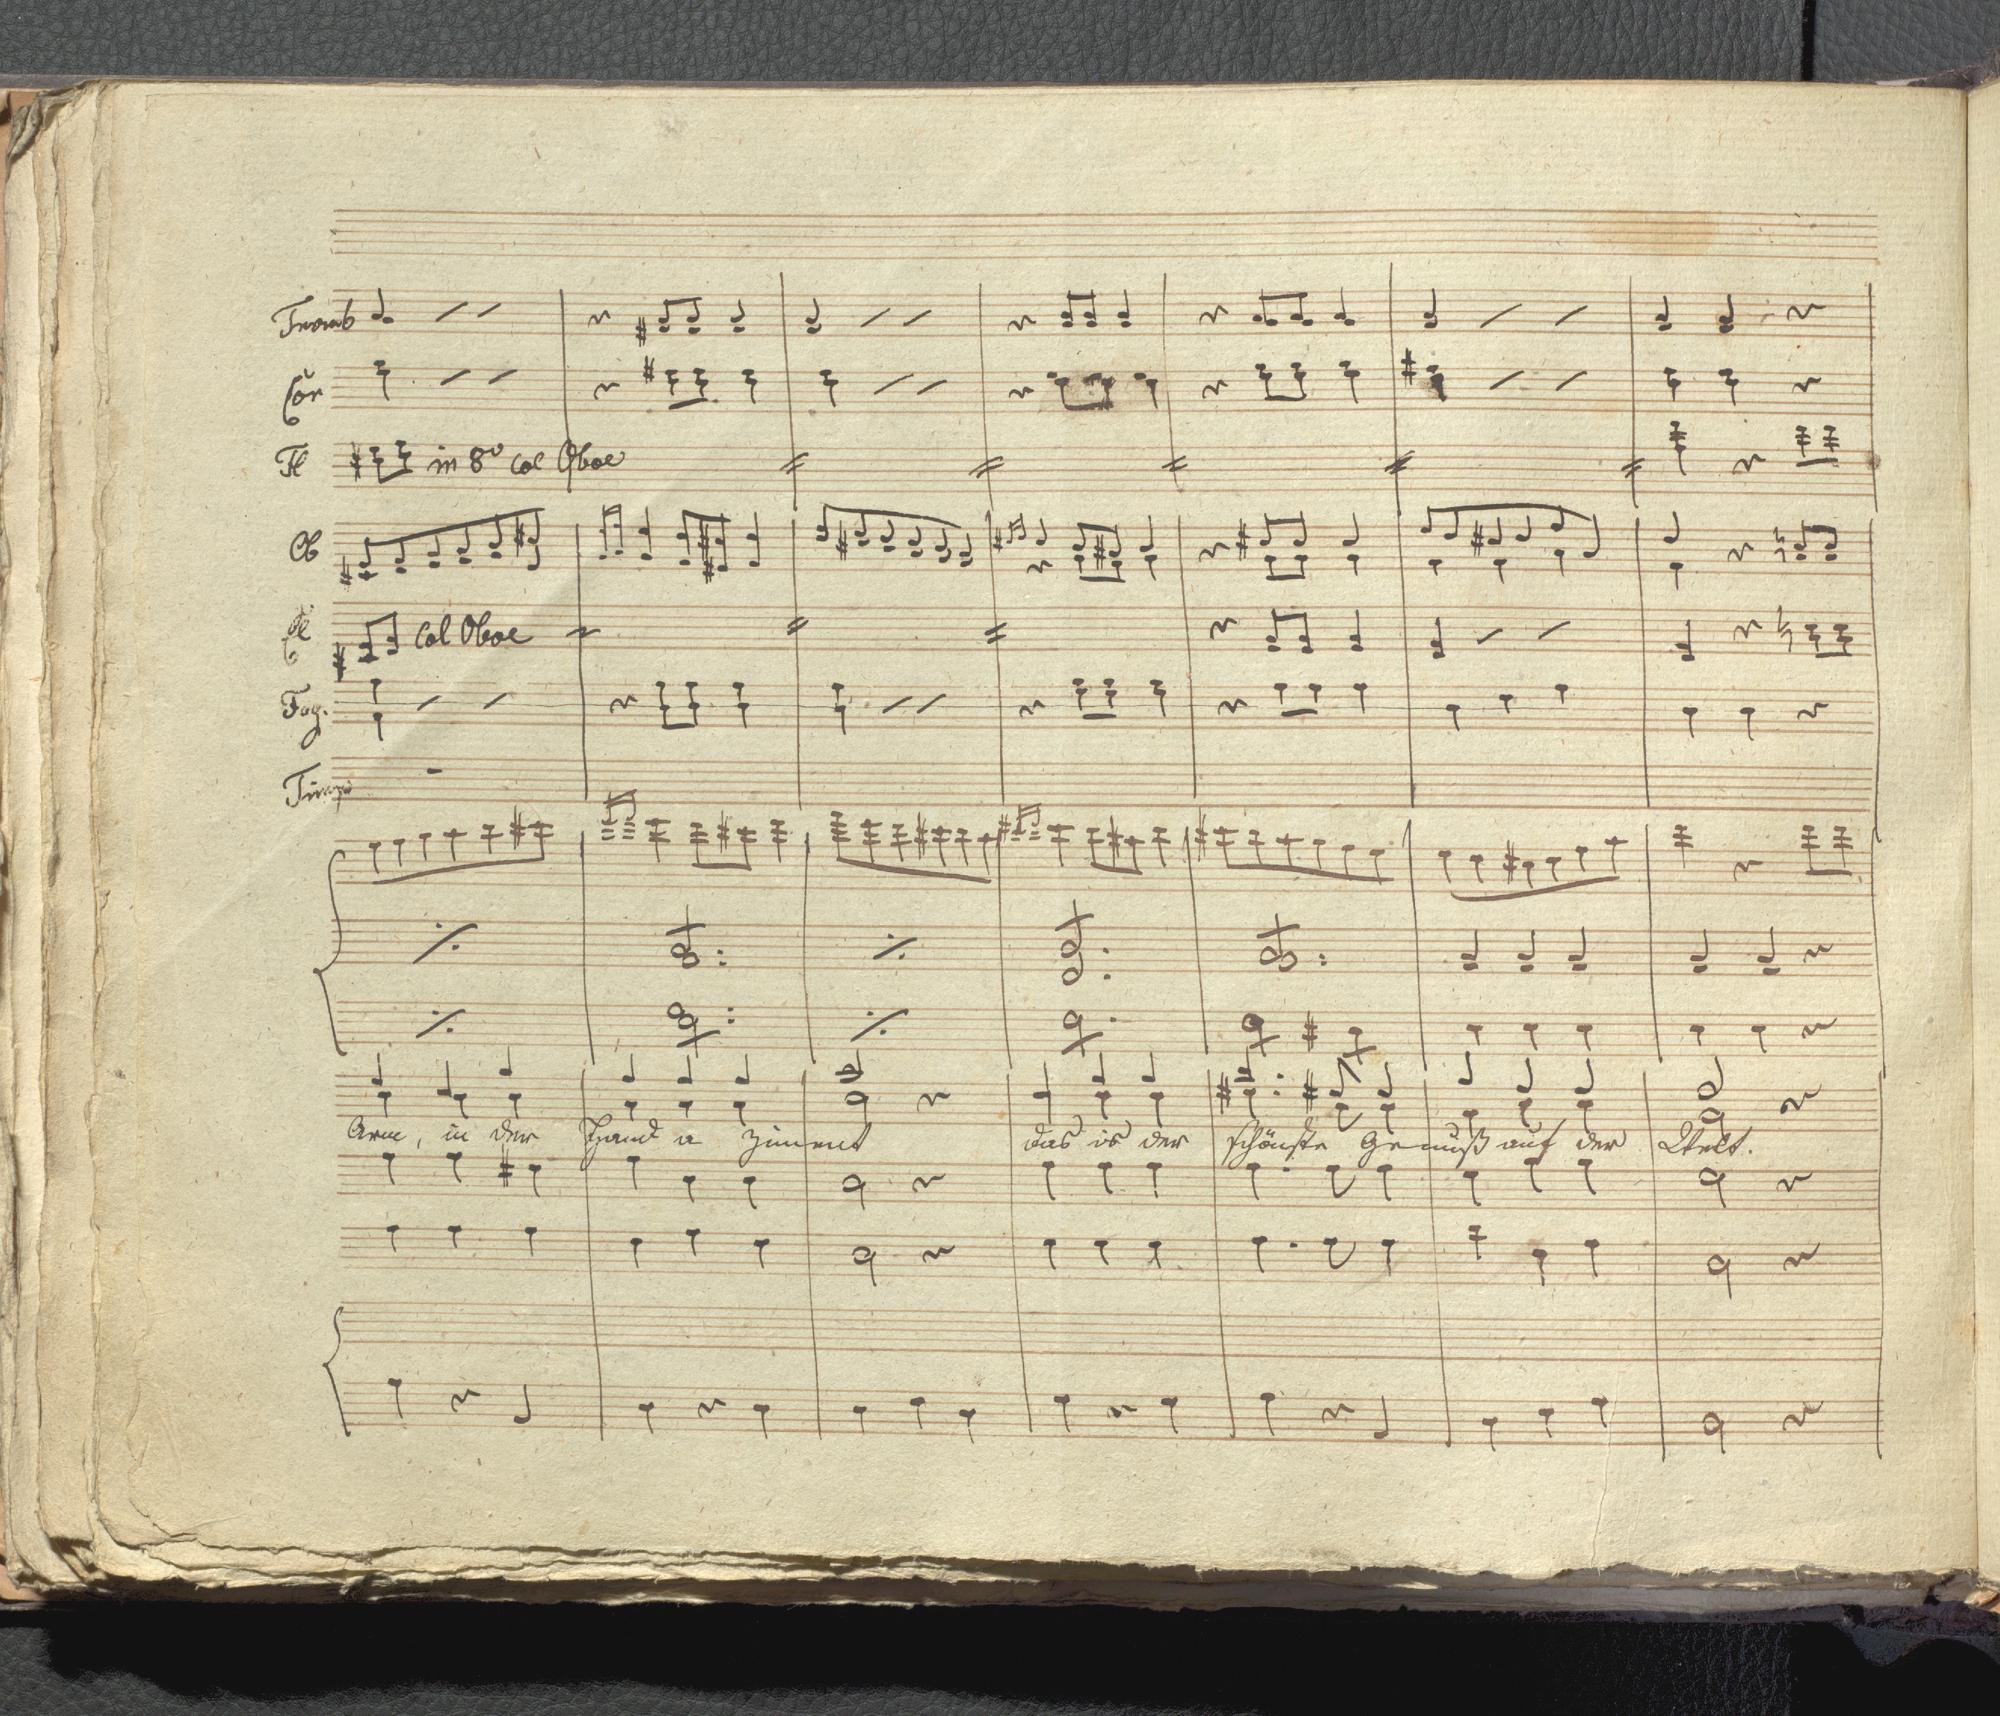 Tromb
Cor
Fl in 8v col Oboe
Ob
Cl col Oboe
Fag.
Timp
Arm, in der Hand a Ziment das is der schönste Genuß auf der Welt.